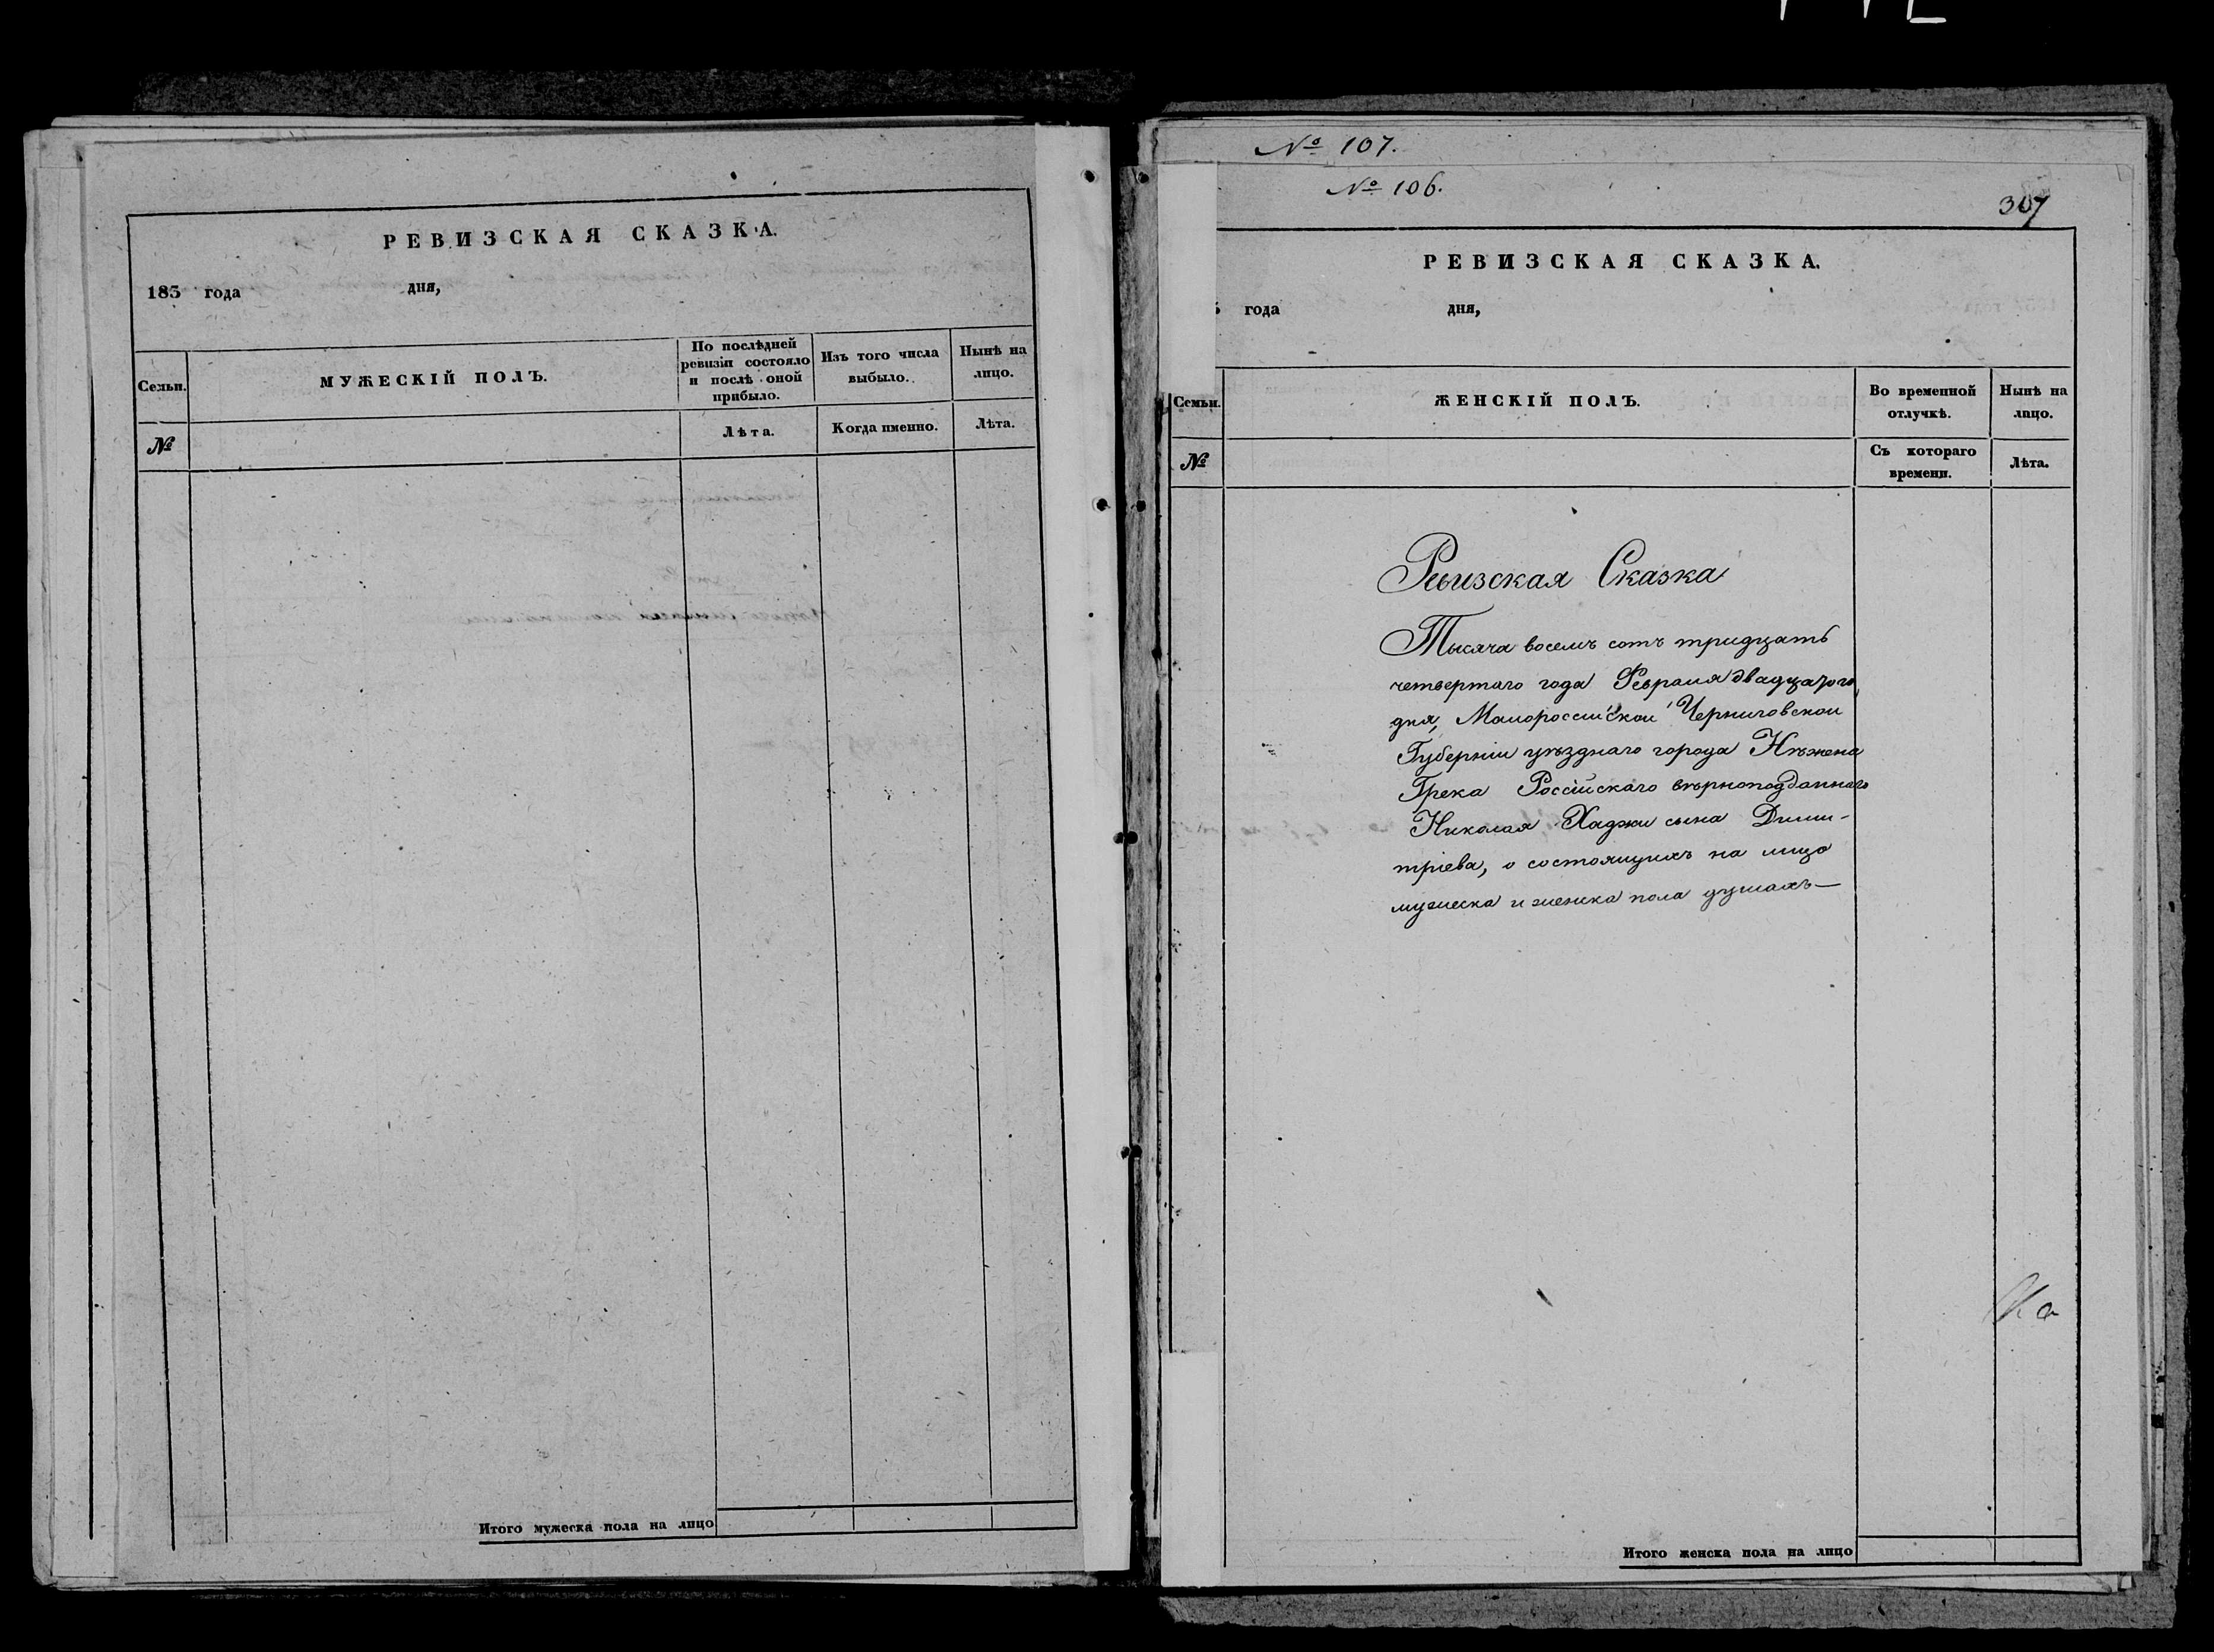 РЕВИЗСКАЯ СКАЗКА.
183 года дня,
Семьи.
МУЖЕСКІЙ ПОЛЪ.
По послѣдней
ревизіи состояло
и послѣ оной
прибыло.
Изъ того числа
выбыло.
Нынѣ на
лицо.
№
Лѣта.
Когда именно.
Лѣта.
Итого мужеска пола на лицо
№ 107.
№ 106.
307
РЕВИЗСКАЯ СКАЗКА.
года дня,
Семьи.
ЖЕНСКІЙ ПОЛЪ.
Во временной
отлучкѣ.
Нынѣ на
лицо.
№
Съ котораго
времени.
Лѣта.
Ревизская Сказка
Тысяча восемъ сотъ тридцать
четвертаго года Февраля двадцатого
дня, Малороссийской Черниговской
Губерніи уѣзднаго города Нѣжена
Грека Россійскаго вѣрноподданнаго
Николая Хаджи сына Дими-
тріева, о состоящихъ на лицо
мужеска и женска пола душахъ—
Итого женска пола на лицо